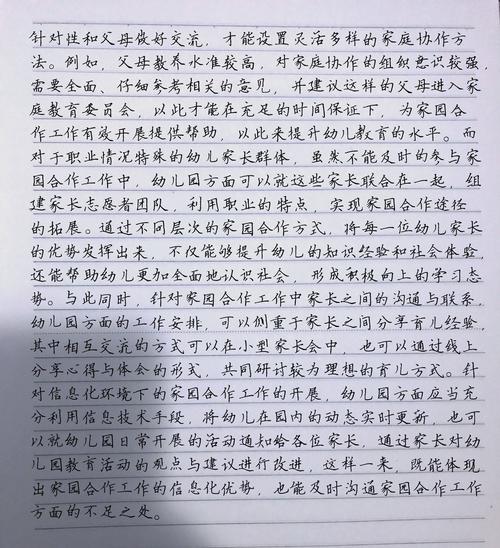 针对性和父母做好交流，才能设置灵活多样的家庭协作方
法。例如，父母教养水准较高，对家庭协作的组织意识较强，
需要全面、仔细参考相关的意见，并建议这样的父母进入家
庭教育委员会，以此才能在充足的时间保证下，为家园合
作工作有效开展提供帮助，以此来提升幼儿教育的水平。而
对于职业情况特殊的幼儿家长群体，虽然不能及时的参与家
园合作工作中，幼儿园方面可以就这些家长联合在一起，组
建家长志愿者团队，利用职业的特点，实现家园合作途径
的拓展。通过不同层次的家园合作方式，将每一位幼儿家长
的优势发挥出来，不仅能够提升幼儿的知识经验和社会体验，
还能帮助幼儿更加全面地认识社会，形成积极向上的学习态
势。与此同时，针对家园合作工作中家长之间的沟通与联系，
幼儿园方面的工作安排，可以侧重于家长之间分享育儿经验，
其中相互交流的方式可以在小型家长会中，也可以通过线上
分享心得与体会的形式，共同研讨较为理想的育儿方式。针
对信息化环境下的家园合作工作的开展，幼儿园方面应当充
分利用信息技术手段，将幼儿在园内的动态实时更新，也可
以就幼儿园日常开展的活动通知给各位家长，通过家长对幼
儿园教育活动的观点与建议进行改进，这样一来，既能体现
出家园合作工作的信息化优势，也能及时沟通家园合作工作
方面的不足之处。